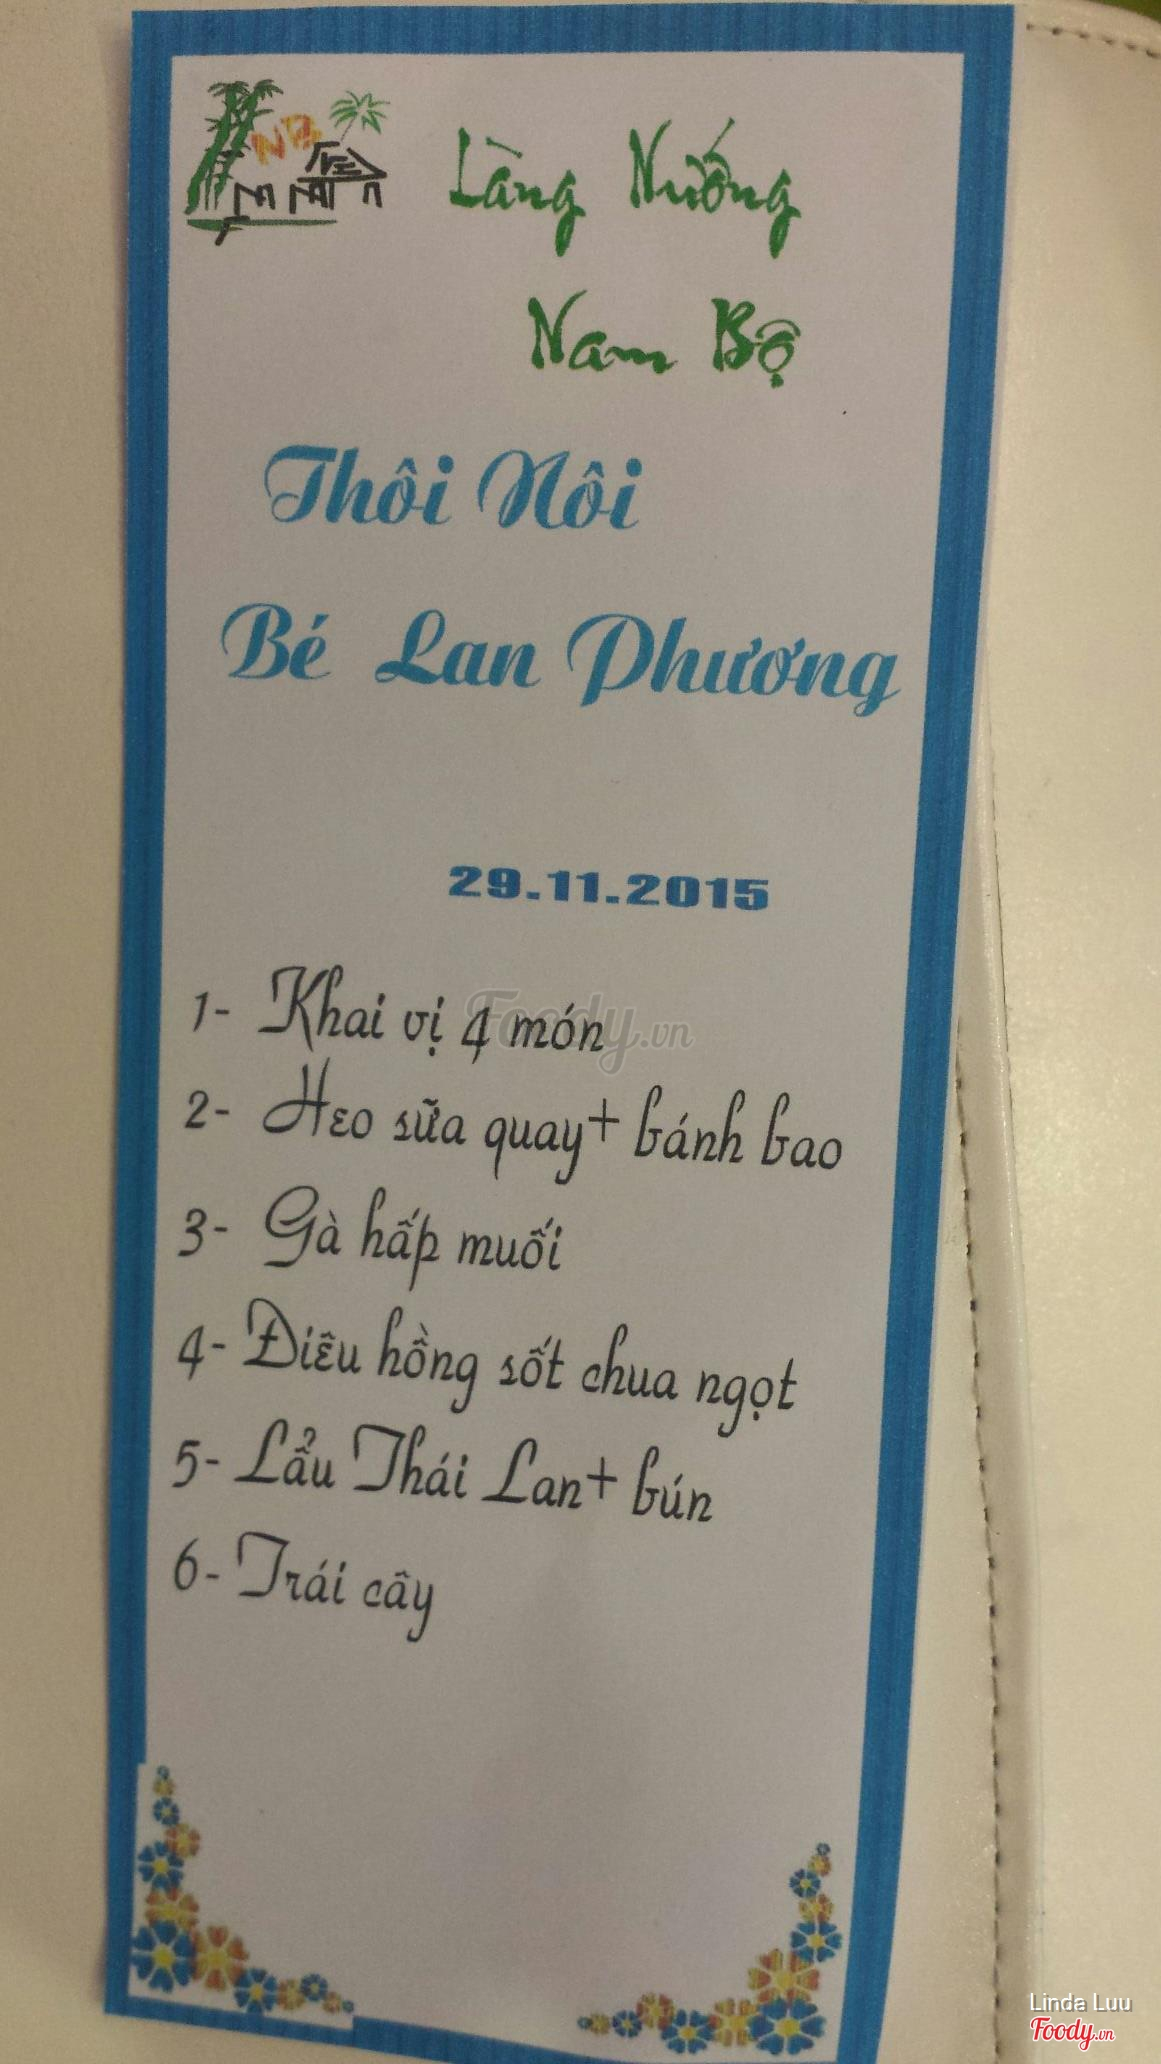 NB
Làng Nướng
Nam Bộ
Thôi Nôi
Bé Lan Phương
29.11.2015
1- Khai vị 4 món
Foody.vn
2- Heo sữa quay+ bánh bao
3- Gà hấp muối
4- Điêu hồng sốt chua ngọt
5- Lẩu Thái Lan+ bún
6- Trái cây
Linda Luu
Foody.vn